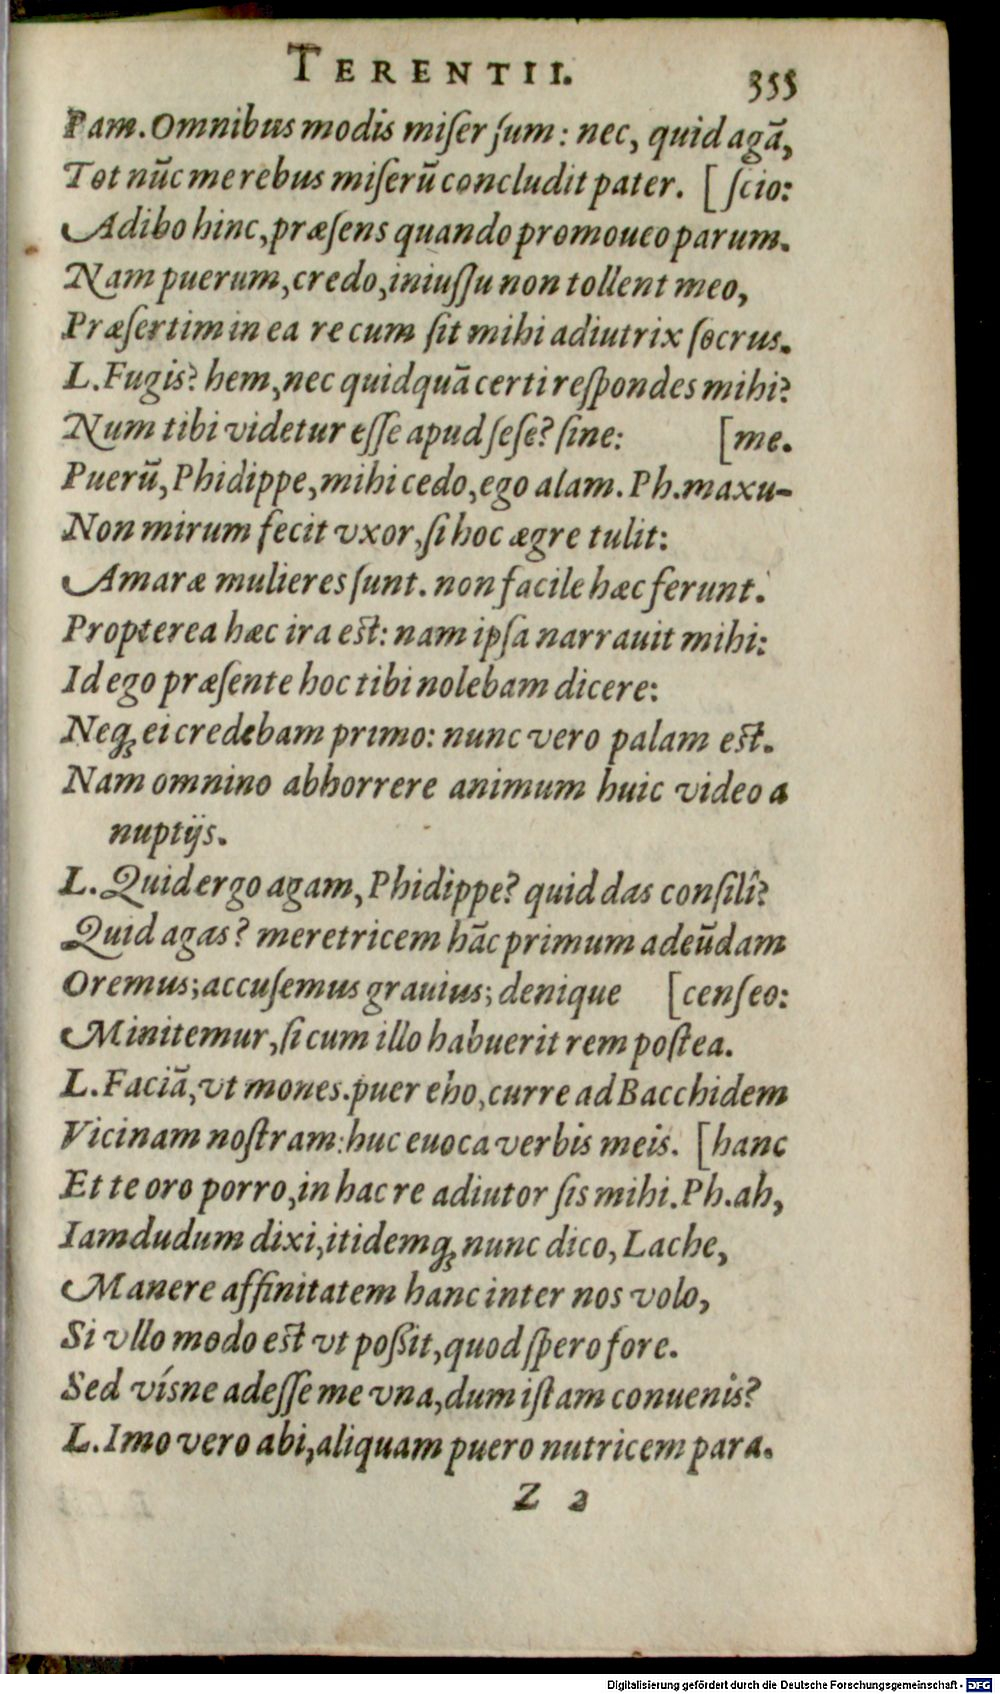 TERENTII. 355
Pam. Omnibus modis miser sum: nec, quid agā,
Tot nūc me rebus miserū concludit pater. [scio:
Adibo hinc, præsens quando promoueo parum.
Nam puerum, credo, iniussu non tollent meo,
Præsertim in ea re cum sit mihi adiutrix socrus.
L. Fugis? hem, nec quidquā certi respondes mihi?
Num tibi videtur esse apud sese? sine: [me.
Puerū, Phidippe, mihi cedo, ego alam. Ph. maxu-
Non mirum fecit vxor, si hoc ægre tulit:
Amaræ mulieres sunt. non facile hæc ferunt.
Propterea hæc ira est: nam ipsa narrauit mihi:
Id ego præsente hoc tibi nolebam dicere:
Neq; ei credebam primo: nunc vero palam est.
Nam omnino abhorrere animum huic video a
nuptijs.
L. Quid ergo agam, Phidippe? quid das consilî?
Quid agas? meretricem hāc primum adeūdam
Oremus; accusemus grauius; denique [censeo:
Minitemur, si cum illo habuerit rem postea.
L. Faciā, vt mones. puer eho, curre ad Bacchidem
Vicinam nostram: huc euoca verbis meis. [hanc
Et te oro porro, in hac re adiutor sis mihi. Ph. ah,
Iamdudum dixi, itidemq; nunc dico, Lache,
Manere affinitatem hanc inter nos volo,
Si vllo modo est vt poßit, quod spero fore.
Sed vísne adesse me vna, dum istam conuenis?
L. Imo vero abi, aliquam puero nutricem para.
Z 2
Digitalisierung gefördert durch die Deutsche Forschungsgemeinschaft - DFG